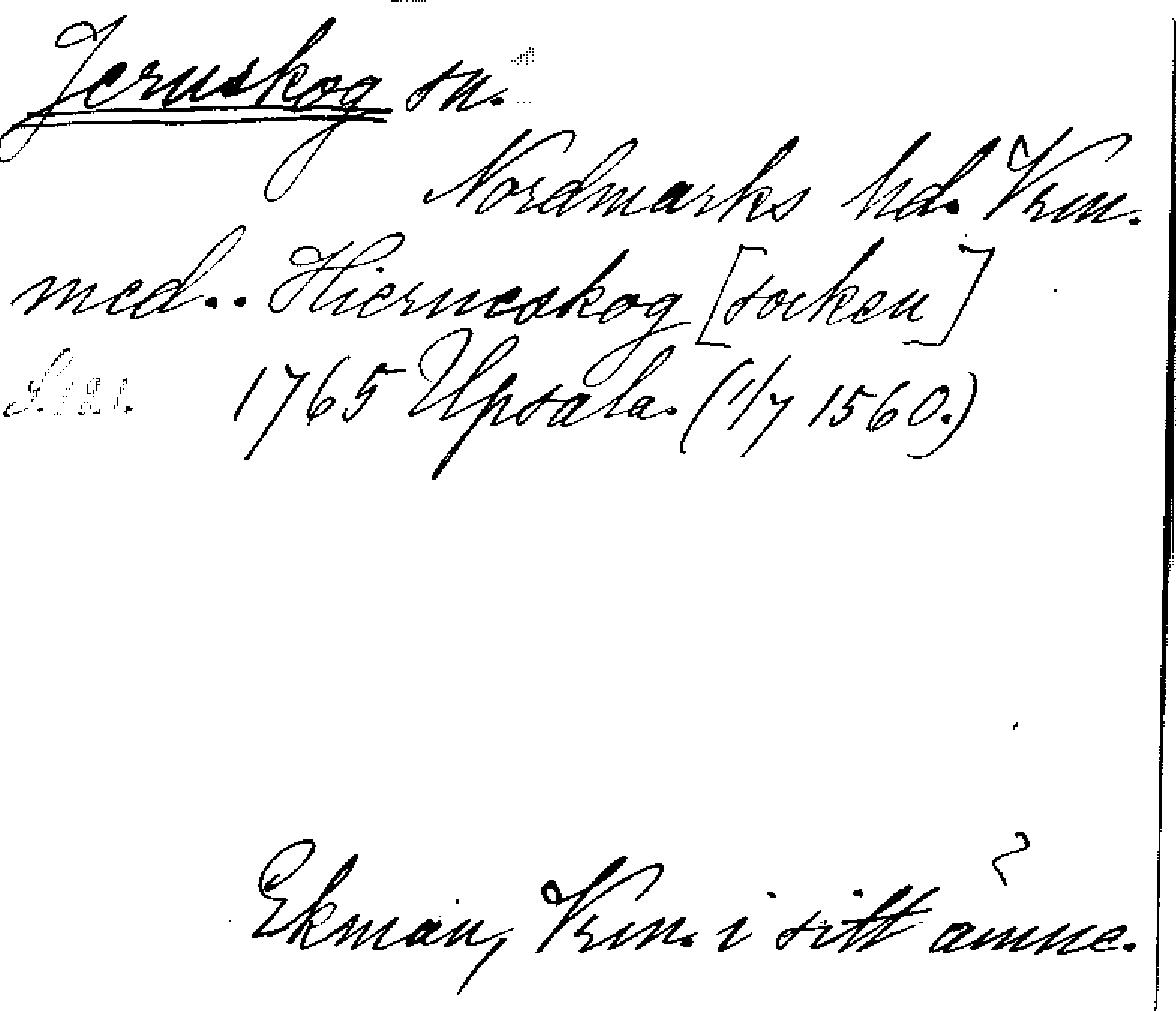 Jernskog sn.
Nordmarks hd. Vrm.
med.. Hierneskog [socken]
S. 121. 1765 Upsala. (1/7 1560.)
Ekman, Vrm. i sitt ämne.